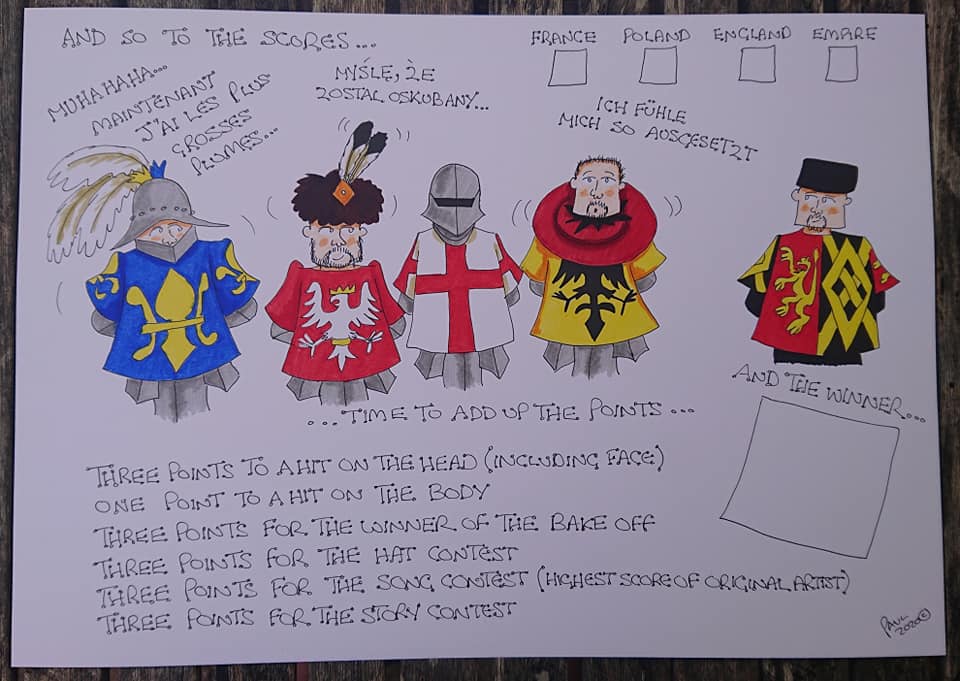 AND SO TO THE SCORES...
FRANCE POLAND ENGLAND EMPIRE
MUHAHAHA...
MAINTENANT
J'AI LES PLUS
GROSSES
PLUMES...
MYŚLĘ, ŻE
ZOSTAL OSKUBANY...
ICH FÜHLE
MICH SO AUSGESETZT
AND THE WINNER...
...TIME TO ADD UP THE POINTS...
THREE POINTS TO A HIT ON THE HEAD (INCLUDING FACE)
ONE POINT TO A HIT ON THE BODY
THREE POINTS FOR THE WINNER OF THE BAKE OFF
THREE POINTS FOR THE HAT CONTEST
THREE POINTS FOR THE SONG CONTEST (HIGHEST SCORE OF ORIGINAL ARTIST)
THREE POINTS FOR THE STORY CONTEST
PAUL
2020©